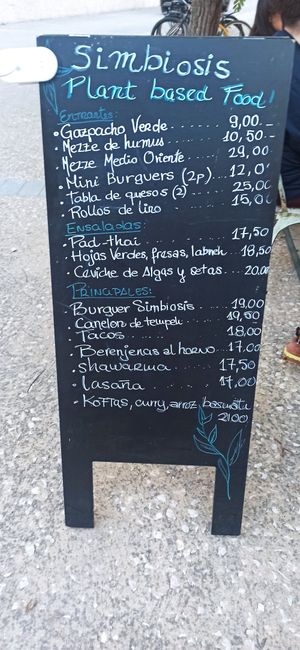 Simbiosis
Plant based Food!
Entrantes:
• Gazpacho Verde ........ 9,00 -
• Mezze de humus ........ 10,50 -
• Mezze Medio Oriente .... 29,00
• Mini Burguers (2p) ... 12,0
• Tabla de quesos (2) ..... 25,00
• Rollos de lino ........ 15,00
Ensaladas:
• Pad-thai ........ 17,50
• Hojas Verdes, fresas, labneh . 18,50
• Ceviche de Algas y setas ... 20.00
Principales:
• Burguer Simbiosis ..... 19,00
• Canelon de tempeh ..... 19,50
• Tacos ........ 18,00
• Berenjenas al horno .. 17,00
• shawarma ..... 17,50
• lasaña ....... 17,00
• Koftas, curry, arroz basmati
21,00